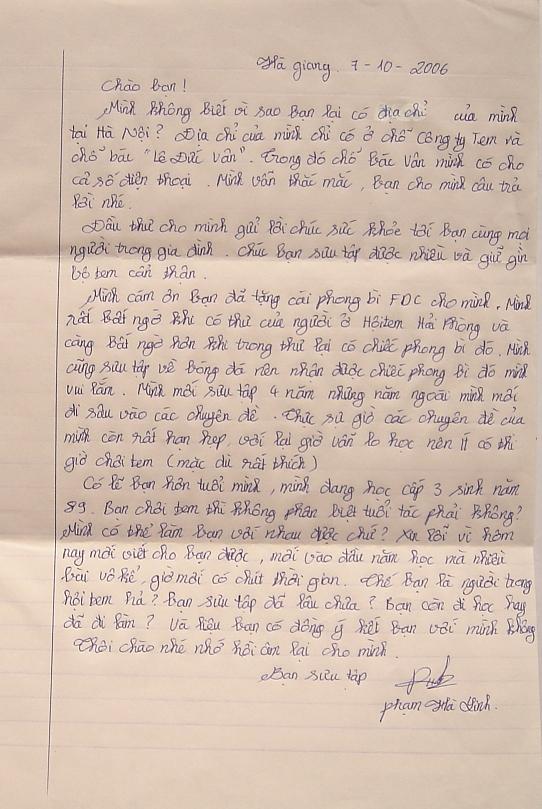 Hà giang. 7-10-2006
Chào bạn!
Mình không biết vì sao Bạn lại có địa chỉ của mình
tại Hà Nội? Địa chỉ của mình chỉ có ở chỗ Công ty Tem và
chỗ bác "Lê Đức Vân". Trong đó chỗ Bác Vân mình có cho
cả số điện thoại. Mình vẫn thắc mắc, Bạn cho mình câu trả
lời nhé.
Đầu thư cho mình gửi lời chúc sức khỏe tới Bạn cùng mọi
người trong gia đình. Chúc Bạn sưu tập được nhiều và giữ gìn
bộ tem cẩn thận.
Mình cám ơn Bạn đã tặng cái phong bì FDC cho mình. Mình
rất Bất ngờ khi có thư của người ở Hội tem Hải Phòng và
càng Bất ngờ hơn khi trong thư lại có chiếc phong bì đó. Mình
cũng sưu tập về bóng đá nên nhận được chiếc phong bì đó mình
vui lắm. Mình mới sưu tập 4 năm những năm ngoái mình mới
đi sâu vào các chuyên đề. Thực sự giờ các chuyên đề của
mình còn rất hạn hẹp, với lại giờ vẫn lo học nên ít có thì
giờ chơi tem (mặc dù rất thích)
Có lẽ Bạn hơn tuổi mình, mình đang học cấp 3 sinh năm
89. Bạn chơi tem thì không phân biệt tuổi tác phải không?
Mình có thể làm bạn với nhau được chứ? Xin lỗi vì hôm
nay mới viết cho Bạn được, mới vào đầu năm học mà nhiều
bài vô kể, giờ mới có chút thời gian. Thế Bạn là người trong
hội tem hả? Bạn sưu tập đã lâu chưa? Bạn còn đi học hay
đã đi làm? Và liệu Bạn có đồng ý kết Bạn với mình không
Thôi chào nhé nhớ hồi âm lại cho mình.
Bạn sưu tập
phạm Hà Ninh.